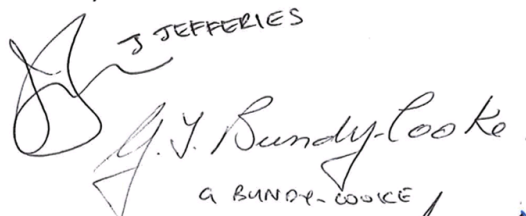 J JEFFERIES
G.Y. Bundy-Cooke
G BUNDY-COOKE